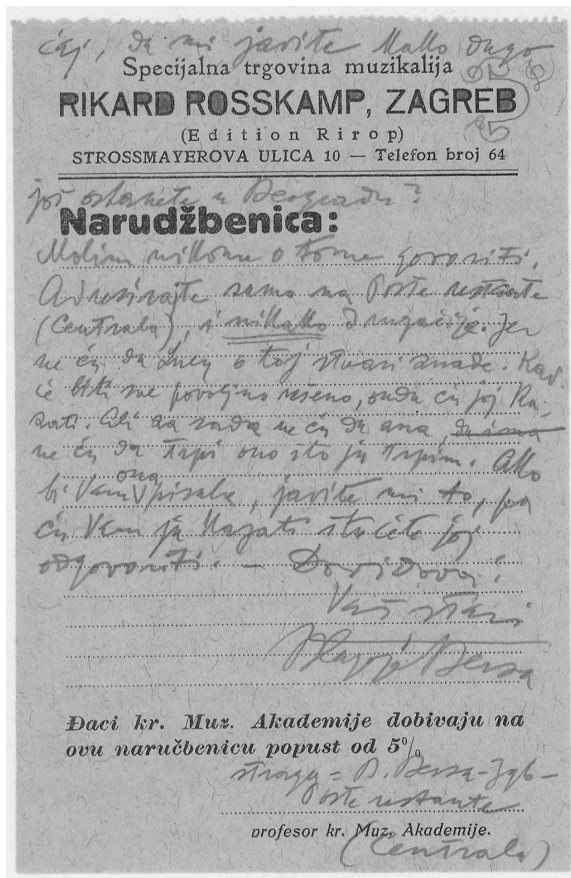 ću, da mi javite kako dugo
Specijalna trgovina muzikalija
RIKARD ROSSKAMP, ZAGREB
(Edition Rirop)
STROSSMAYEROVA ULICA 10 — Telefon broj 64
još ostanete u Beogradu?
Narudžbenica:
Molim nikomu o tome govoriti.
Adresirajte samo na Poste restante
(Centrala), i nikako drugačije. Jer
ne ću da o toj stvari znade. Kad
će biti sve povoljno rešeno, onda ću joj ka-
zati. Ali za sada ne ću da zna,
ne ću da trpi ono što ja trpim. Ako
bi Vam ona pisala, javite mi to, pa
ću Vam ja kazati šta ćete joj
odgovoriti. — Dovidova!
Vaš stari
Blagoje Bersa
Đaci kr. Muz. Akademije dobivaju na
ovu naručbenicu popust od 5%
B. Bersa-Zgb-
Poste restante
profesor kr. Muz. Akademije.
(Centrala)